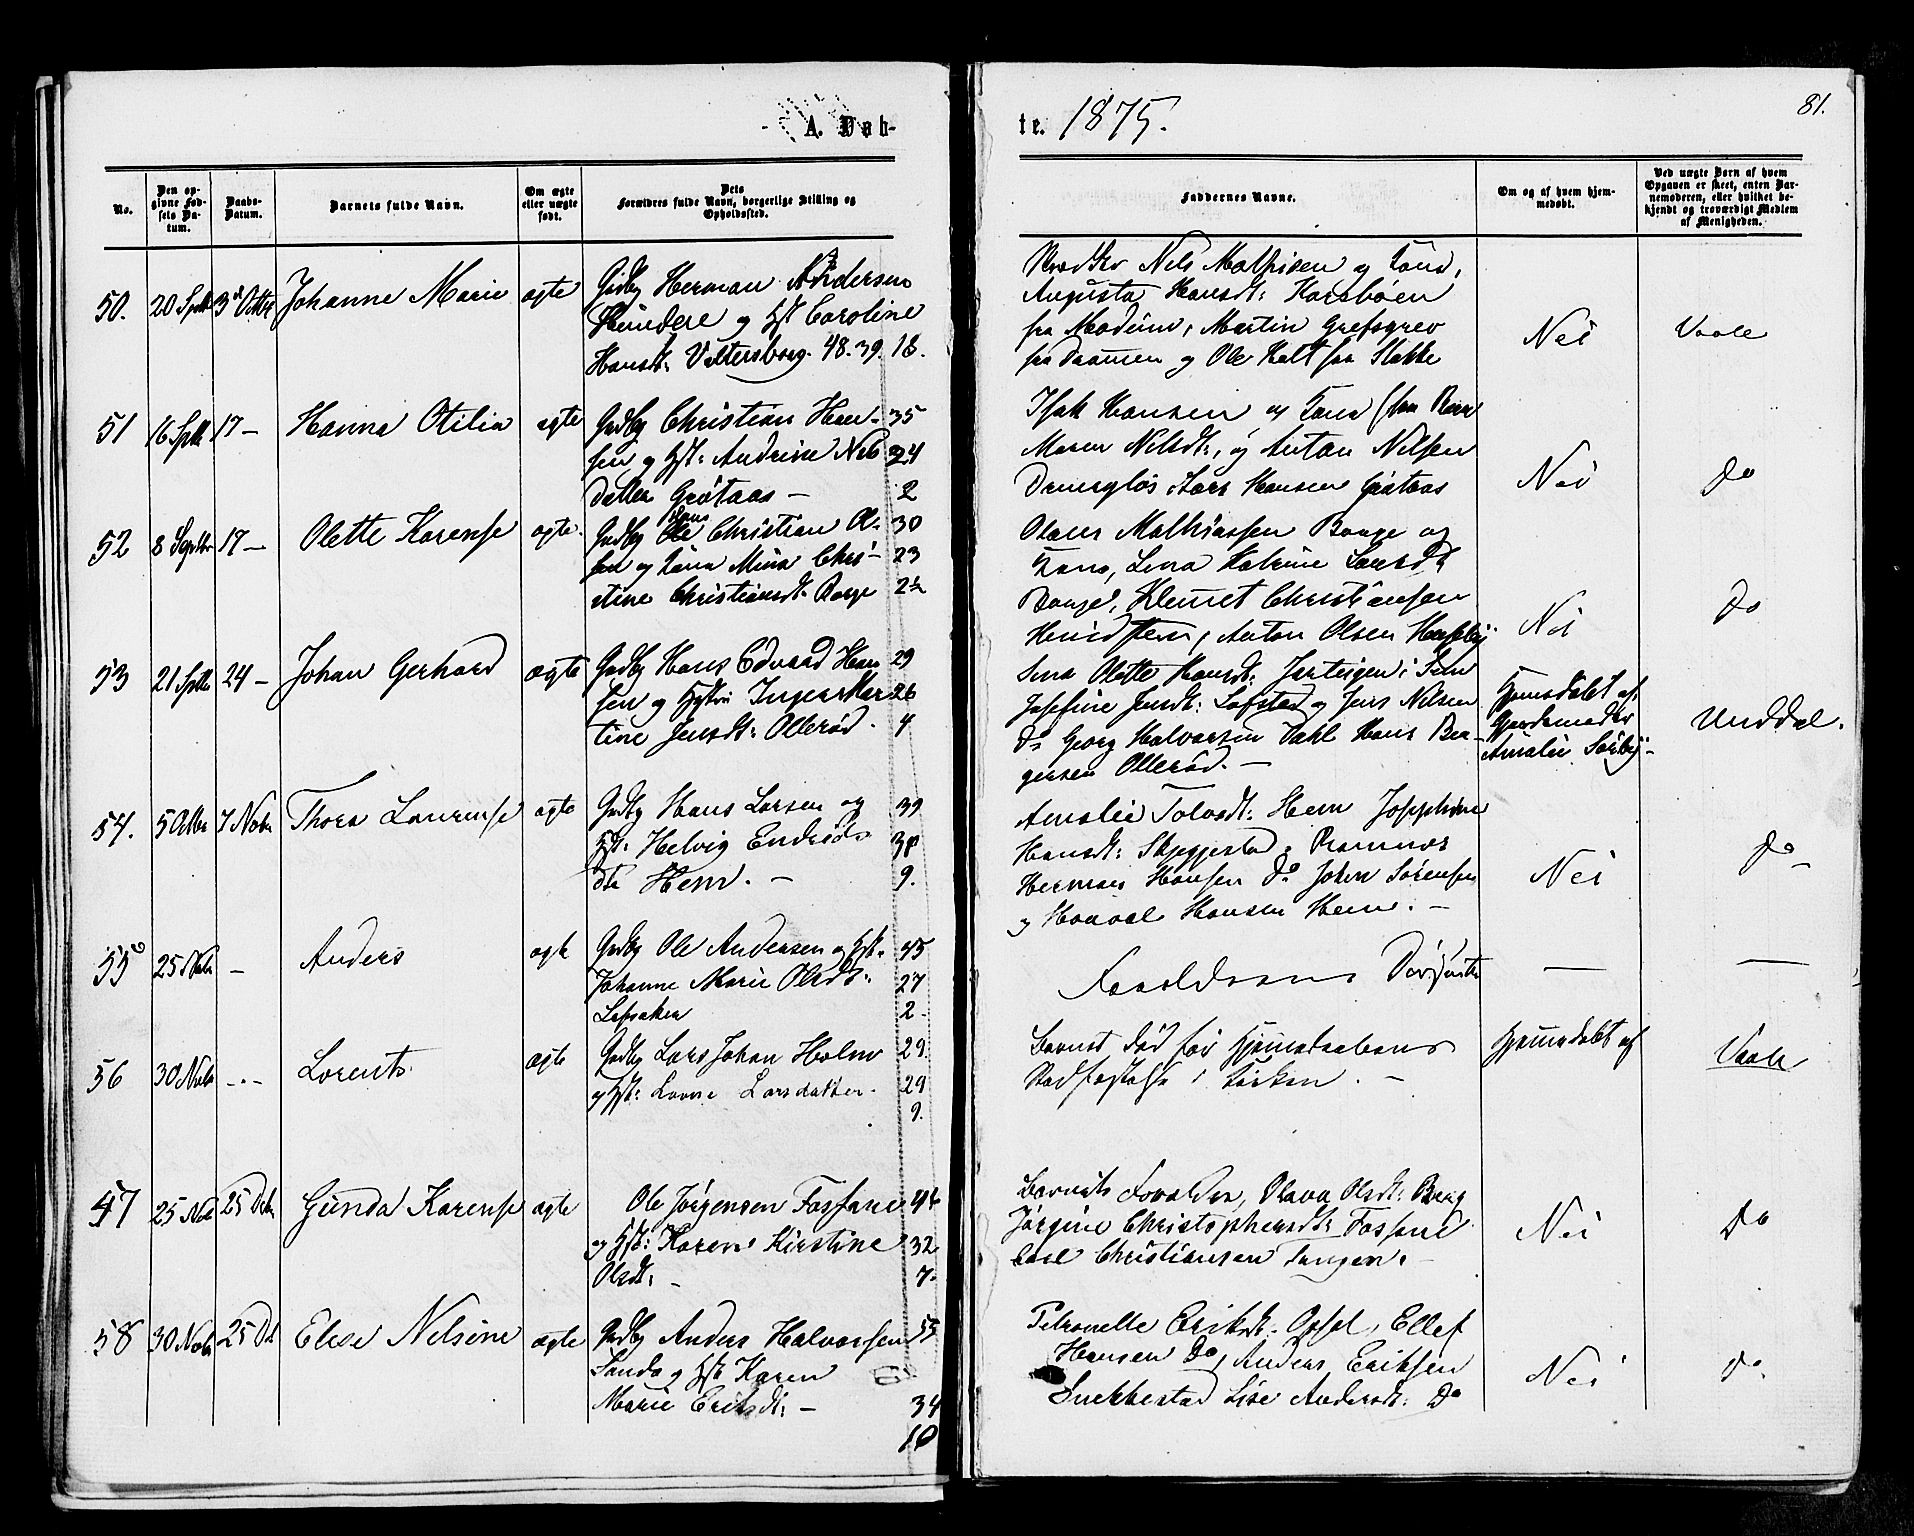 A. Døb-
te. 1875.
81.
No.
Den op-
givne Fød-
sels Da-
tum.
Daabs-
Datum.
Barnets fulde Navn.
Om ægte
eller uægte
født.
Dets
Forældres fulde Navn, borgerlige Stilling og
Opholdssted.
Faddernes Navne.
Om og af hvem hjem-
medøbt.
Ved uægte Børn af hvem
Opgaven er skeet, enten Bar-
nemoderen, eller hvilket be-
kjendt og troværdigt Medlem
af Menigheden.
50. 20 Sptb 3 Octbr Johanne Marie ægte Gdbg Herman Andersen
og Hst Caroline
Hansdt: 48. 39. 18.
Nils Mathisen og Kone,
Augusta Hansdt:
fra Modum, Martin
og Ole Holt fra Stokke
Nei
Vaale
51 16 Sptb 17 — Hanna Otilia ægte Gdbg Christian Han- 35
sen og Hst: Andrine Nils 24
datter Grøtaas — 2
Isak Hansen og Kone
Maren Nilsdt:, og Anton Nilsen
Lars Hansen Grøtaas
Nei
Do
52 8 Septbr 17 — Olette Karense ægte. Gdbg Hans Christian Ol- 30
sen og Kone Mina Chri- 23
stine Christiansdt: 2½
Olaus Mathiassen og
Kone, Lina Katrine Larsdt
Klemet Christiansen
Anton Olsen
Nei
Do
53 21 Sptb 24 — Johan Gerhard ægte Gdbg Hans Edvard Han 29
sen og Hustru Inger Mar 26
tine Jensdt: Ollerød. 4
Olette Hansdt: Jarteigen i Sem
Josefine Jensdt: Løfstad og Jens Nilsen
Do Georg Halvorsen Dahl Hans Bør-
gersen Ollerød. —
Hjemedøbt af
Gjordemoder
Amalie Sørby
Unddal.
54. 5 Octbr 7 Novbr Thora Laurense ægte Gdbg Hans Larsen og 39
Hst: Helvig Endreds 38
dtr Hem. — 9.
Amalie Tolvsdt: Hem Josephine
Hansdt: Skjeggestad i Ramnes
Herman Hansen Do Johan Sørensen
og Hansen Hem. —
Nei
Do
55 25 Novbr — Anders ægte Gdbg Ole Andersen og Hst. 45
Johanne Marie Olsdt: 27
2 -
—
—
56 30 Novbr Lorents ægte Gdbg Lars Johan Holm 29.
og Hst: Larsdatter. 29
9.
Barnet død før Hjemedaabens
Stadfæstelse i Kirken. —
Hjemedøbt af
Vaale
57 25 Nov 25 Decbr Gunda Karense ægte Ole Jørgensen Fossane
og Hst: Karen Kirstine 32
Olsdt: — 7.
Barnets Forældre, Olava Olsdt: Berg
Jørgine Christophersdt: Fossane
Carl Christiansen Langen.
Nei
Do
58 30 Novbr 25 Dc Elise Nilsine ægte Gdbg Anders Halvorsen 55
Sande og Hst Karen
Marie Eriksdt: — 34
10
Petronelle Eriksdt. Opsal, Ellef
Hansen Do, Anders Eriksen
Snekkestad Lise Andersdt: Do
Nei
Do